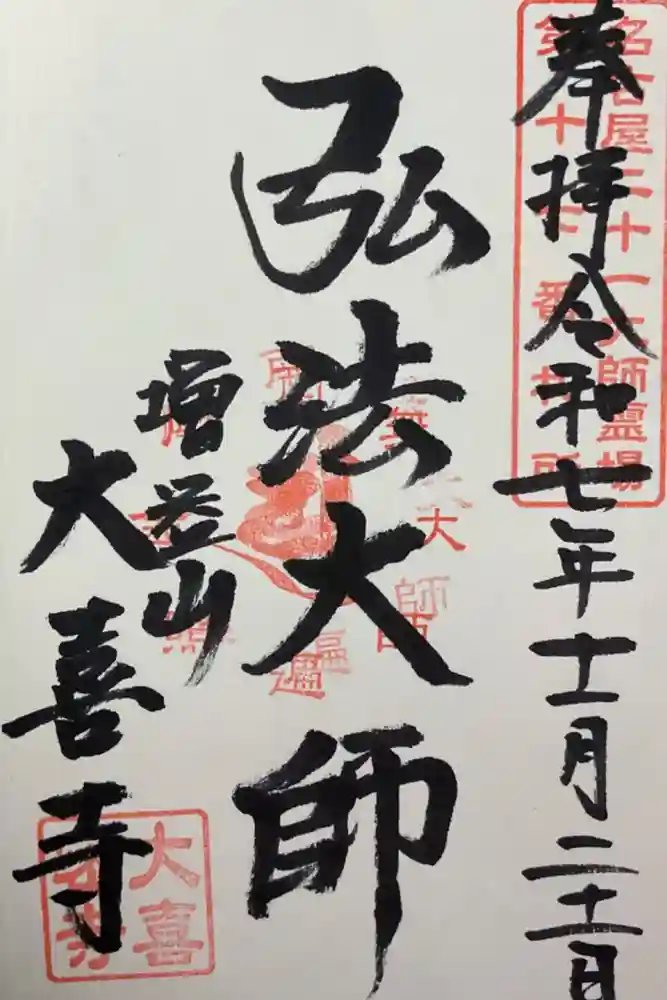 奉拝 令和七年十一月二十一日
名古屋二十一大師靈場
第十七番札所
弘法大師
南無大師遍照
増益山
大喜寺
大喜寺